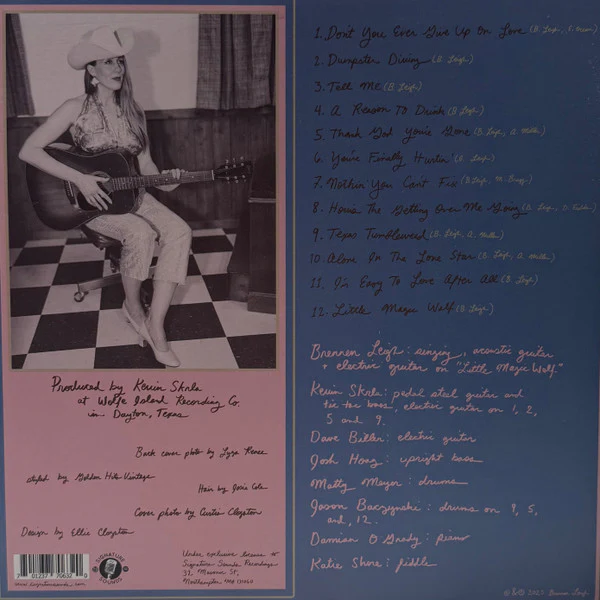 1. Don't You Ever Give Up On Love (B. Leigh,
2. Dumpster Diving (B. Leigh)
3. Tell Me (B. Leigh)
4. A Reason To Drink (B. Leigh)
5. Thank God You're Gone (B. Leigh,
6. You're Finally Hurtin' (B. Leigh)
7. Nothin' You Can't Fix (B. Leigh,
8. How's The Getting Over Me Going (B. Leigh,
9. Texas Tumbleweed (B. Leigh,
10. Alone In The Lone Star (B. Leigh,
11. I'm Easy To Love After All (B. Leigh)
12. Little Magic Wolf (B. Leigh)
Brennen Leigh: singing, acoustic guitar
+ electric guitar on "Little Magic Wolf."
Kevin Skrla: pedal steel guitar and
tic tac bass, electric guitar on 1, 2,
5 and 9.
Dave Biller: electric guitar
Josh Hoag: upright bass
Matty Meyer: drums
Jason Baczynski: drums on 4, 5,
and, 12.
Damian O'Grady: piano
Katie Shore: fiddle
Produced by Kevin Skrla
at Wolfe Island Recording Co.
in Dayton, Texas
Back cover photo by Lyza Renee
styled by Golden Hits Vintage
Hair by Josie Cole
Cover photo by Curtis Clogston
Design by Ellie Clogston
SIGNATURE SOUNDS
Under exclusive license to
Signature Sounds Recordings
32 Masonic St,
Northampton MA 01060
7 01237 70632 0
2025 Brennen Leigh